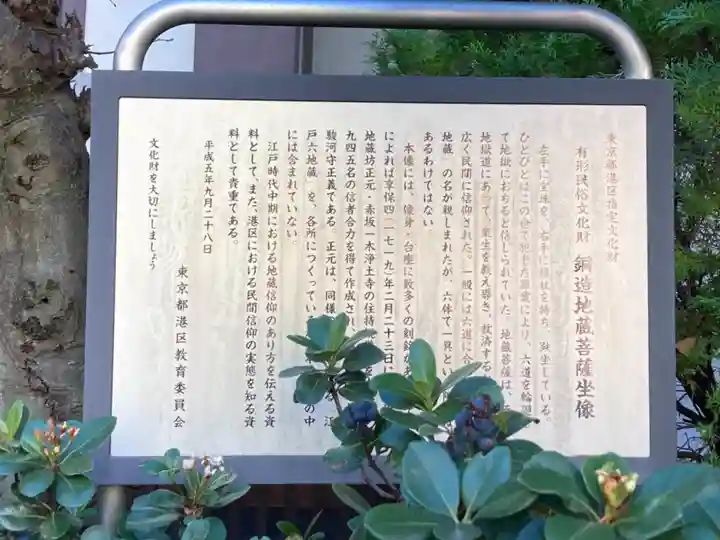 東京都港区指定文化財
有形民俗文化財　銅造地蔵菩薩坐像
左手に宝珠を、右手に錫杖を持ち、趺坐している。
ひとびとはこの世で犯した罪業により、六道を輪廻
て地獄におちると信じられていた。地蔵菩薩は、
地獄道にあって、衆生を教え導き、救済する
広く民間に信仰された。一般には六道に合
地蔵」の名が親しまれたが、六体で一具とい
あるわけではない
本像には、像身・台座に数多くの刻銘
によれば享保四（一七一九）年二月二十三日に
地蔵坊正元・赤坂一木浄土寺の住持
九四五名の信者合力を得て作成され
駿河守正義である。正元は、同様の 江
戸六地蔵」を、各所につくってい の中
には含まれていない。
江戸時代中期における地蔵信仰のあり方を伝える資
料として、また、港区における民間信仰の実態を知る資
料として貴重である。
平成五年九月二十八日
東京都港区教育委員会
文化財を大切にしましょう